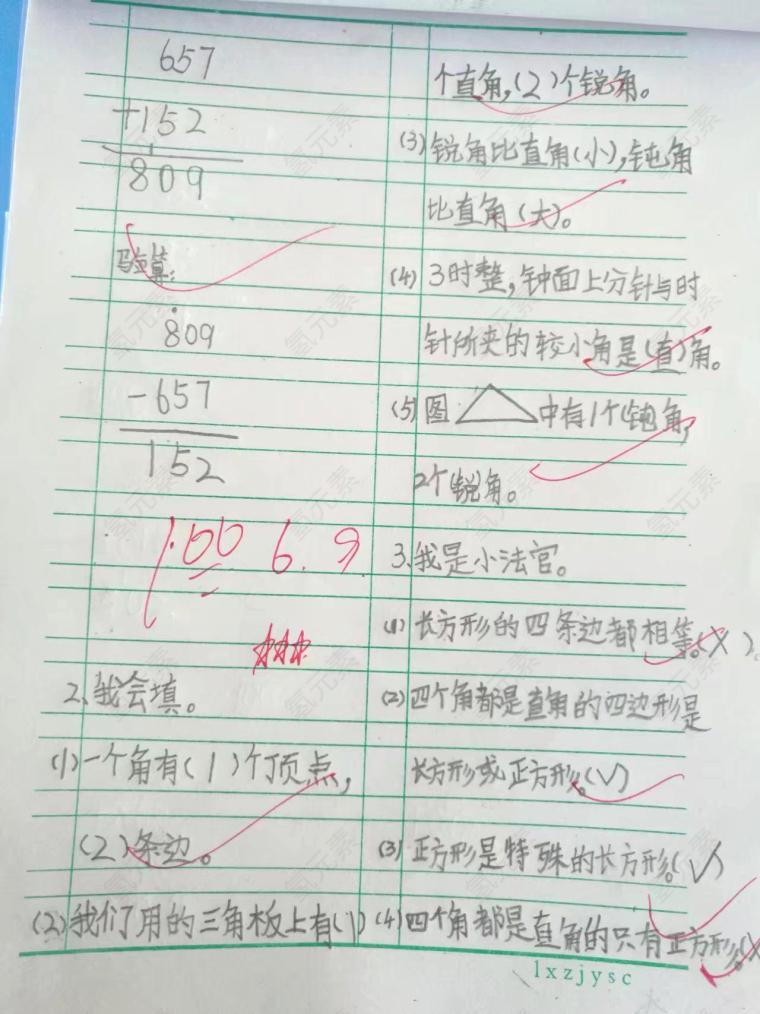 657
+152
809
验算:
809
-657
152
100 6.9
2、我会填。
(1)一个角有(1)个顶点,
(2)条边。
(2)我们用的三角板上有(1)
个直角,(2)个锐角。
(3)锐角比直角(小),钝角
比直角(大)。
(4)3时整,钟面上分针与时
针所夹的较小角是(直)角。
(5)图 中有1个(钝)角,
2个(锐)角。
3、我是小法官。
(1)长方形的四条边都相等。(X)。
(2)四个角都是直角的四边形是
长方形或正方形。(√)
(3)正方形是特殊的长方形。(√)
(4)四个角都是直角的只有正方形。(X
lxzjysc
氢元素